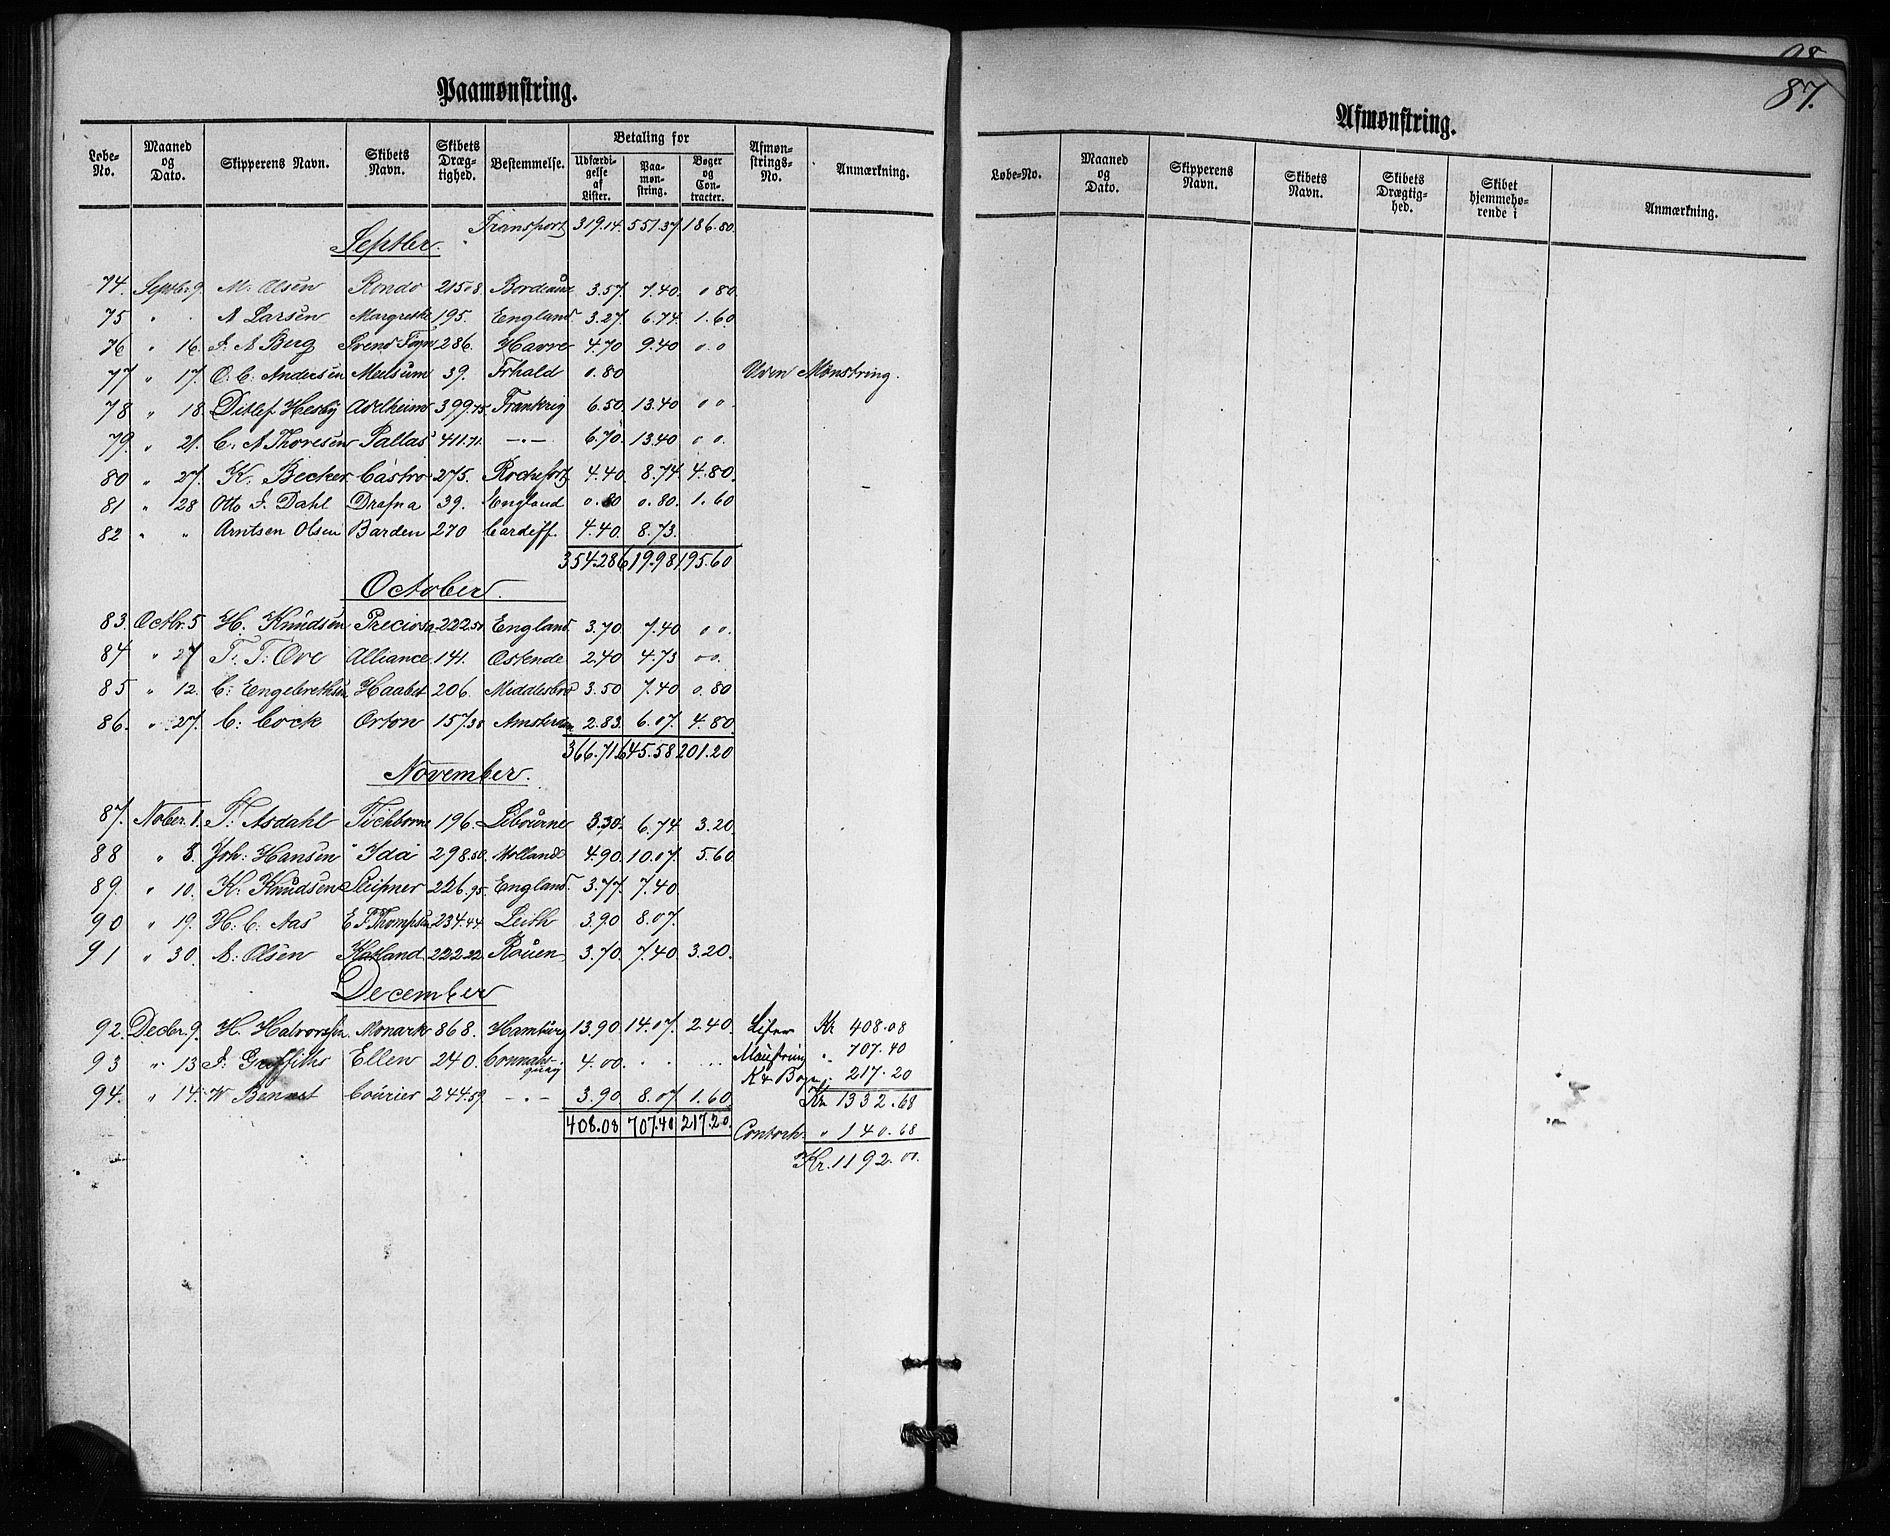 Paamønstring.
Løbe-No. Maaned og Dato. Skipperens Navn. Skibets Navn. Skibets Drægtighed. Bestemmelse. Betaling for Udfærdigelse af Lister. Paamønstring. Bøger og Contracter. Afmønstrings-No. Anmærkning.
Transport 319.14. 551.37 186.80.
Septbr.
74. Septbr. 9. M. Olsen Rondo 215.08. Bordeaux 3.57. 7.40. 0 80.
75 " . A Larsen Margrethe 195. England. 3.27. 6.74. 1.60.
76 " 16. F. A Berg Svend Foyn 286. Havre 4.70 9.40 0.0
77 " 17. O. C. Andersen 39. Frhald 0.80 Uden Mønstring.
78 " 18. Ditlef Hesby Adelheim 399.75. Frankrig 6.50. 13.40 0 0.
79. " 21. C. A Thoresen Pallas 411.71. —"— 6.70. 13.40 0 0.
80 " 27. K. Becker Castro 275. Rochefort 4.40. 8.74. 4.80.
81 " 28 Otto F. Dahl Drafna 39. England 0.80 0.80. 1.60
82 " " Arntsen Olsen Barden 270 Cardiff. 4.40. 8.73.
354.28 619.98 195.60
October.
83. Octbr. 5. H. Knudsen Preciosa 222.50 England. 3.70. 7.40 0 0.
84 " 27 T. T. Ove Alliance 141. Ostende 2.40 4.73 00.
85 " 12. C. Engebrethsen Haabet 206. Middlesbro 3.50 7.40 0.80
86. " 27. C. Cock Orton 157.38 Amsterdam 2.83. 6.07. 4.80.
366.71. 645.58 201.20
November.
87. Nober. 1. T. Asdahl Tichborne 196. Libourne 3.30. 6.74 3.20.
88 " 8. Joh: Hansen Ida 298.50. Holland 4.90. 10.07. 5.60.
89. " 10. K. Knudsen Sleipner 226.95. England. 3.77. 7.40.
90 " 19. H. C. Aas E F Thompsen 234.44. Leith 3.90 8.07.
91 " 30. A. Olsen Hatland 222.22. Rouen. 3.70. 7.40. 3.20.
December
92. Decbr. 9. H. Halvorsen Monark 868. Hamburg 13.90. 14.07. 2.40. Lister Kr 408.08
93 " 13 F. Griffiths Ellen 240. Connahs quay 4.00. . . ... Mønstring ". 707.40
K & Bøger 217.20
94. " 14. W Bennet Courier 244.59. —"— 3.90. 8.07. 1.60. Kr 1332.68
408.08 707.40 217.20. Contorh. " 140.68
Kr. 1192.00.
98
87.
Afmønstring.
Løbe-No. Maaned og Dato. Skipperens Navn. Skibets Navn. Skibets Drægtighed. Skibet hjemmehørende i Anmærkning.